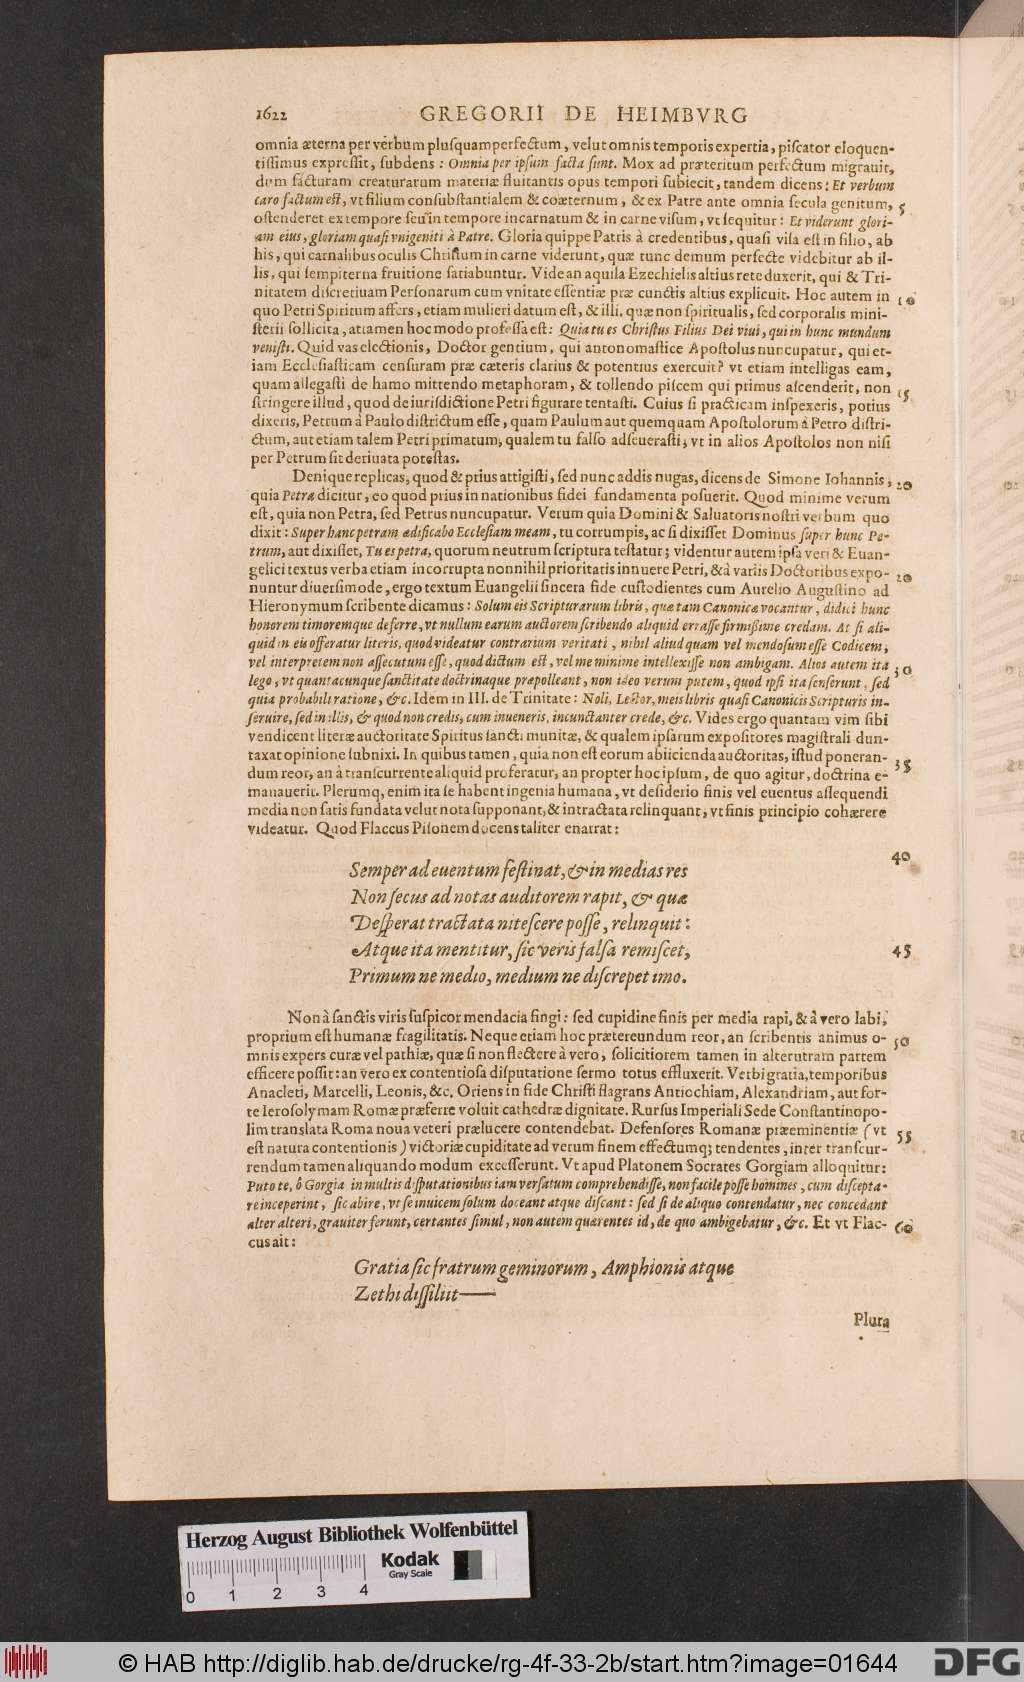 1622 GREGORII DE HEIMBVRG
omnia æterna per verbum plusquamperfectum, velut omnis temporis expertia, piscator eloquen-
tissimus expressit, subdens: Omnia per ipsum facta sunt. Mox ad præteritum perfectum migrauit,
dum facturam creaturarum materiæ fluitantis opus tempori subiecit, tandem dicens: Et verbum
caro factum est, vt filium consubstantialem & coæternum, & ex Patre ante omnia secula genitum, 5
ostenderet ex tempore seu in tempore incarnatum & in carne visum, vt sequitur: Et viderunt glori-
am eius, gloriam quasi vnigeniti à Patre. Gloria quippe Patris à credentibus, quasi visa est in filio, ab
his, qui carnalibus oculis Christum in carne viderunt, quæ tunc demum perfecte videbitur ab il-
lis, qui sempiterna fruitione satiabuntur. Vide an aquila Ezechielis altius rete duxerit, qui & Tri-
nitatem discretiuam Personarum cum vnitate essentiæ præ cunctis altius explicuit. Hoc autem in 10
quo Petri Spiritum affers, etiam mulieri datum est, & illi, quæ non spiritualis, sed corporalis mini-
sterii sollicita, attamen hoc modo professa est: Quia tu es Christus Filius Dei viui, qui in hunc mundum
venisti. Quid vas electionis, Doctor gentium, qui antonomastice Apostolus nuncupatur, qui et-
iam Ecclesiasticam censuram præ cæteris clarius & potentius exercuit? vt etiam intelligas eam,
quam allegasti de hamo mittendo metaphoram, & tollendo piscem qui primus ascenderit, non 15
stringere illud, quod de iurisdictione Petri figurare tentasti. Cuius si practicam inspexeris, potius
dixeris, Petrum à Paulo districtum esse, quam Paulum aut quemquam Apostolorum à Petro distri-
ctum, aut etiam talem Petri primatum, qualem tu falso adseuerasti, vt in alios Apostolos non nisi
per Petrum sit deriuata potestas.
Denique replicas, quod & prius attigisti, sed nunc addis nugas, dicens de Simone Iohannis, 20
quia Petra dicitur, eo quod prius in nationibus fidei fundamenta posuerit. Quod minime verum
est, quia non Petra, sed Petrus nuncupatur. Verum quia Domini & Saluatoris nostri verbum quo
dixit: Super hanc petram ædificabo Ecclesiam meam, tu corrumpis, ac si dixisset Dominus super hunc Pe-
trum, aut dixisset, Tu es petra, quorum neutrum scriptura testatur; videntur autem ipsa veri & Euan-
gelici textus verba etiam incorrupta nonnihil prioritatis innuere Petri, & à variis Doctoribus expo- 20
nuntur diuersimode, ergo textum Euangelii sincera fide custodientes cum Aurelio Augustino ad
Hieronymum scribente dicamus: Solum eis Scripturarum libris, quæ tam Canonicæ vocantur, didici hunc
honorem timoremque deferre, vt nullum earum auctorem scribendo aliquid errasse firmißime credam. At si ali-
quid in eis offeratur literis, quod videatur contrarium veritati, nihil aliud quam vel mendosum esse Codicem,
vel interpretem non assecutum esse, quod dictum est, vel me minime intellexisse non ambigam. Alios autem ita 30
lego, vt quantacunque sanctitate doctrinaque præpolleant, non ideo verum putem, quod ipsi ita senserunt, sed
quia probabili ratione, &c. Idem in III. de Trinitate: Noli, Lector, meis libris quasi Canonicis Scripturis in-
seruire, sed in illis, & quod non credis, cum inueneris, incunctanter crede, &c. Vides ergo quantam vim sibi
vendicent literæ auctoritate Spiritus sancti munitæ, & qualem ipsarum expositores magistrali dun-
taxat opinione subnixi. In quibus tamen, quia non est eorum abiicienda auctoritas, istud poneran- 35
dum reor, an à transcurrente aliquid proferatur, an propter hoc ipsum, de quo agitur, doctrina e-
manauerit. Plerumq; enim ita se habent ingenia humana, vt desiderio finis vel euentus assequendi
media non satis fundata velut nota supponant, & intractata relinquant, vt finis principio cohærere
videatur. Quod Flaccus Pisonem docens taliter enarrat:
40
Semper ad euentum festinat, & in medias res
Non secus ad notas auditorem rapit, & quæ
Desperat tractata nitescere posse, relinquit:
Atque ita mentitur, sic veris falsa remiscet, 45
Primum ne medio, medium ne discrepet imo.
Non à sanctis viris suspicor mendacia fingi: sed cupidine finis per media rapi, & à vero labi,
proprium est humanæ fragilitatis. Neque etiam hoc prætereundum reor, an scribentis animus o- 50
mnis expers curæ vel pathiæ, quæ si non flectere à vero, solicitiorem tamen in alterutram partem
efficere possit: an vero ex contentiosa disputatione sermo totus effluxerit. Verbi gratia, temporibus
Anacleti, Marcelli, Leonis, &c. Oriens in fide Christi flagrans Antiochiam, Alexandriam, aut for-
te Ierosolymam Romæ præferre voluit cathedræ dignitate. Rursus Imperiali Sede Constantinopo-
lim translata Roma noua veteri prælucere contendebat. Defensores Romanæ præeminentiæ (vt 55
est natura contentionis) victoriæ cupiditate ad verum finem effectumq; tendentes, inter transcur-
rendum tamen aliquando modum excesserunt. Vt apud Platonem Socrates Gorgiam alloquitur:
Puto te, ô Gorgia in multis disputationibus iam versatum comprehendisse, non facile posse homines, cum discepta-
re inceperint, sic abire, vt se inuicem solum doceant atque discant: sed si de aliquo contendatur, nec concedant
alter alteri, grauiter ferunt, certantes simul, non autem quærentes id, de quo ambigebatur, &c. Et vt Flac- 60
cus ait:
Gratia sic fratrum geminorum, Amphionis atque
Zethi dissiliit——
Plura
Herzog August Bibliothek Wolfenbüttel
Kodak
Gray Scale
0 1 2 3 4
© HAB http://diglib.hab.de/drucke/rg-4f-33-2b/start.htm?image=01644
DFG